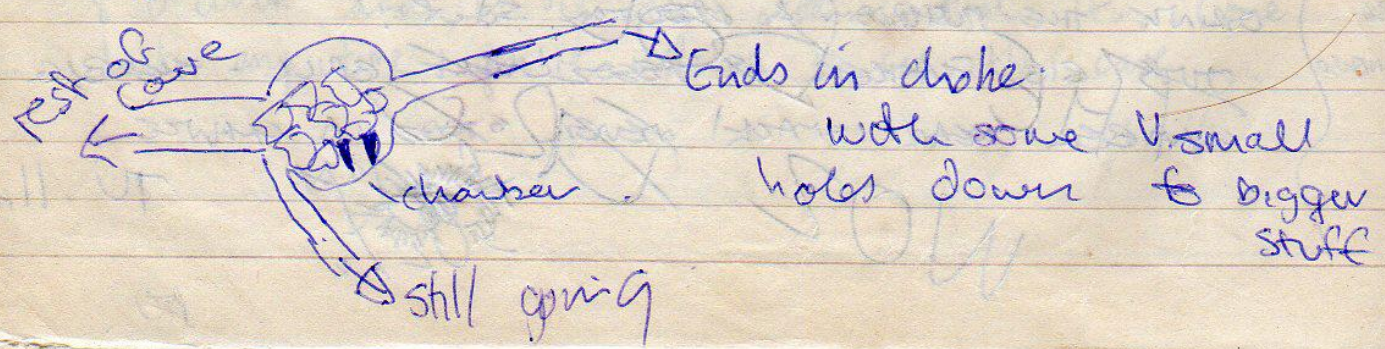 rest of
cave
Ends in choke.
with some V. small
holes down to bigger
stuff
chamber.
still going